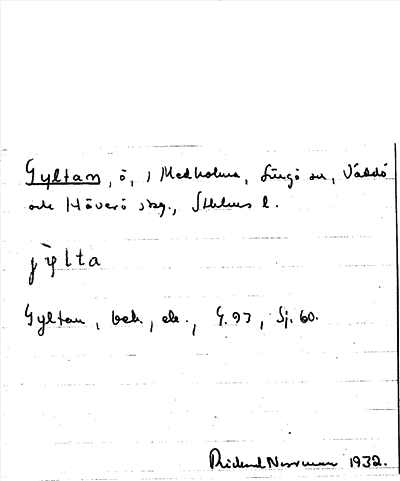 Gyltan, ö, i Medholma, Singö sn, Väddö
och Häverö skg., Sthlms l.
jy̆lta
Gyltan, bek, ek., G.93, Sj. 60.
Rickard Norrman 1932.